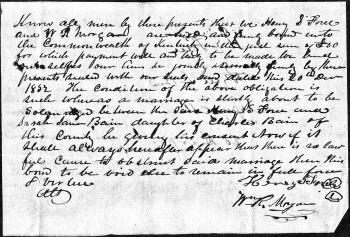 Know all men by these presents that we Henry S Force
and W R Morgan are held and firmly bound unto
the Commonwealth of Kentucky in the just sum of £50
for which payment well and truly to be made we bind
ourselves our heirs &c jointly severally firmly by these
presents sealed with our seals and dated this 20 Nov
1852 The Condition of the above obligation is
such whereas a marriage is shortly about to be
Solemnized between the said Henry S Force and
Sarah Jane Bain daughter of Charles Bain of
this County he giving his consent Now if it
shall always hereafter appear that there is no law
ful cause to obstruct said marriage then this
bond to be void else to remain in full force
& virtue
att
Henry S Force
Wm R. Morgan